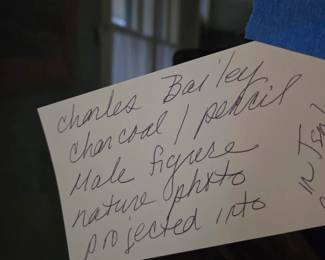 Charles Bailey
Charcoal / pencil
Male figure
nature photo
projected into
in